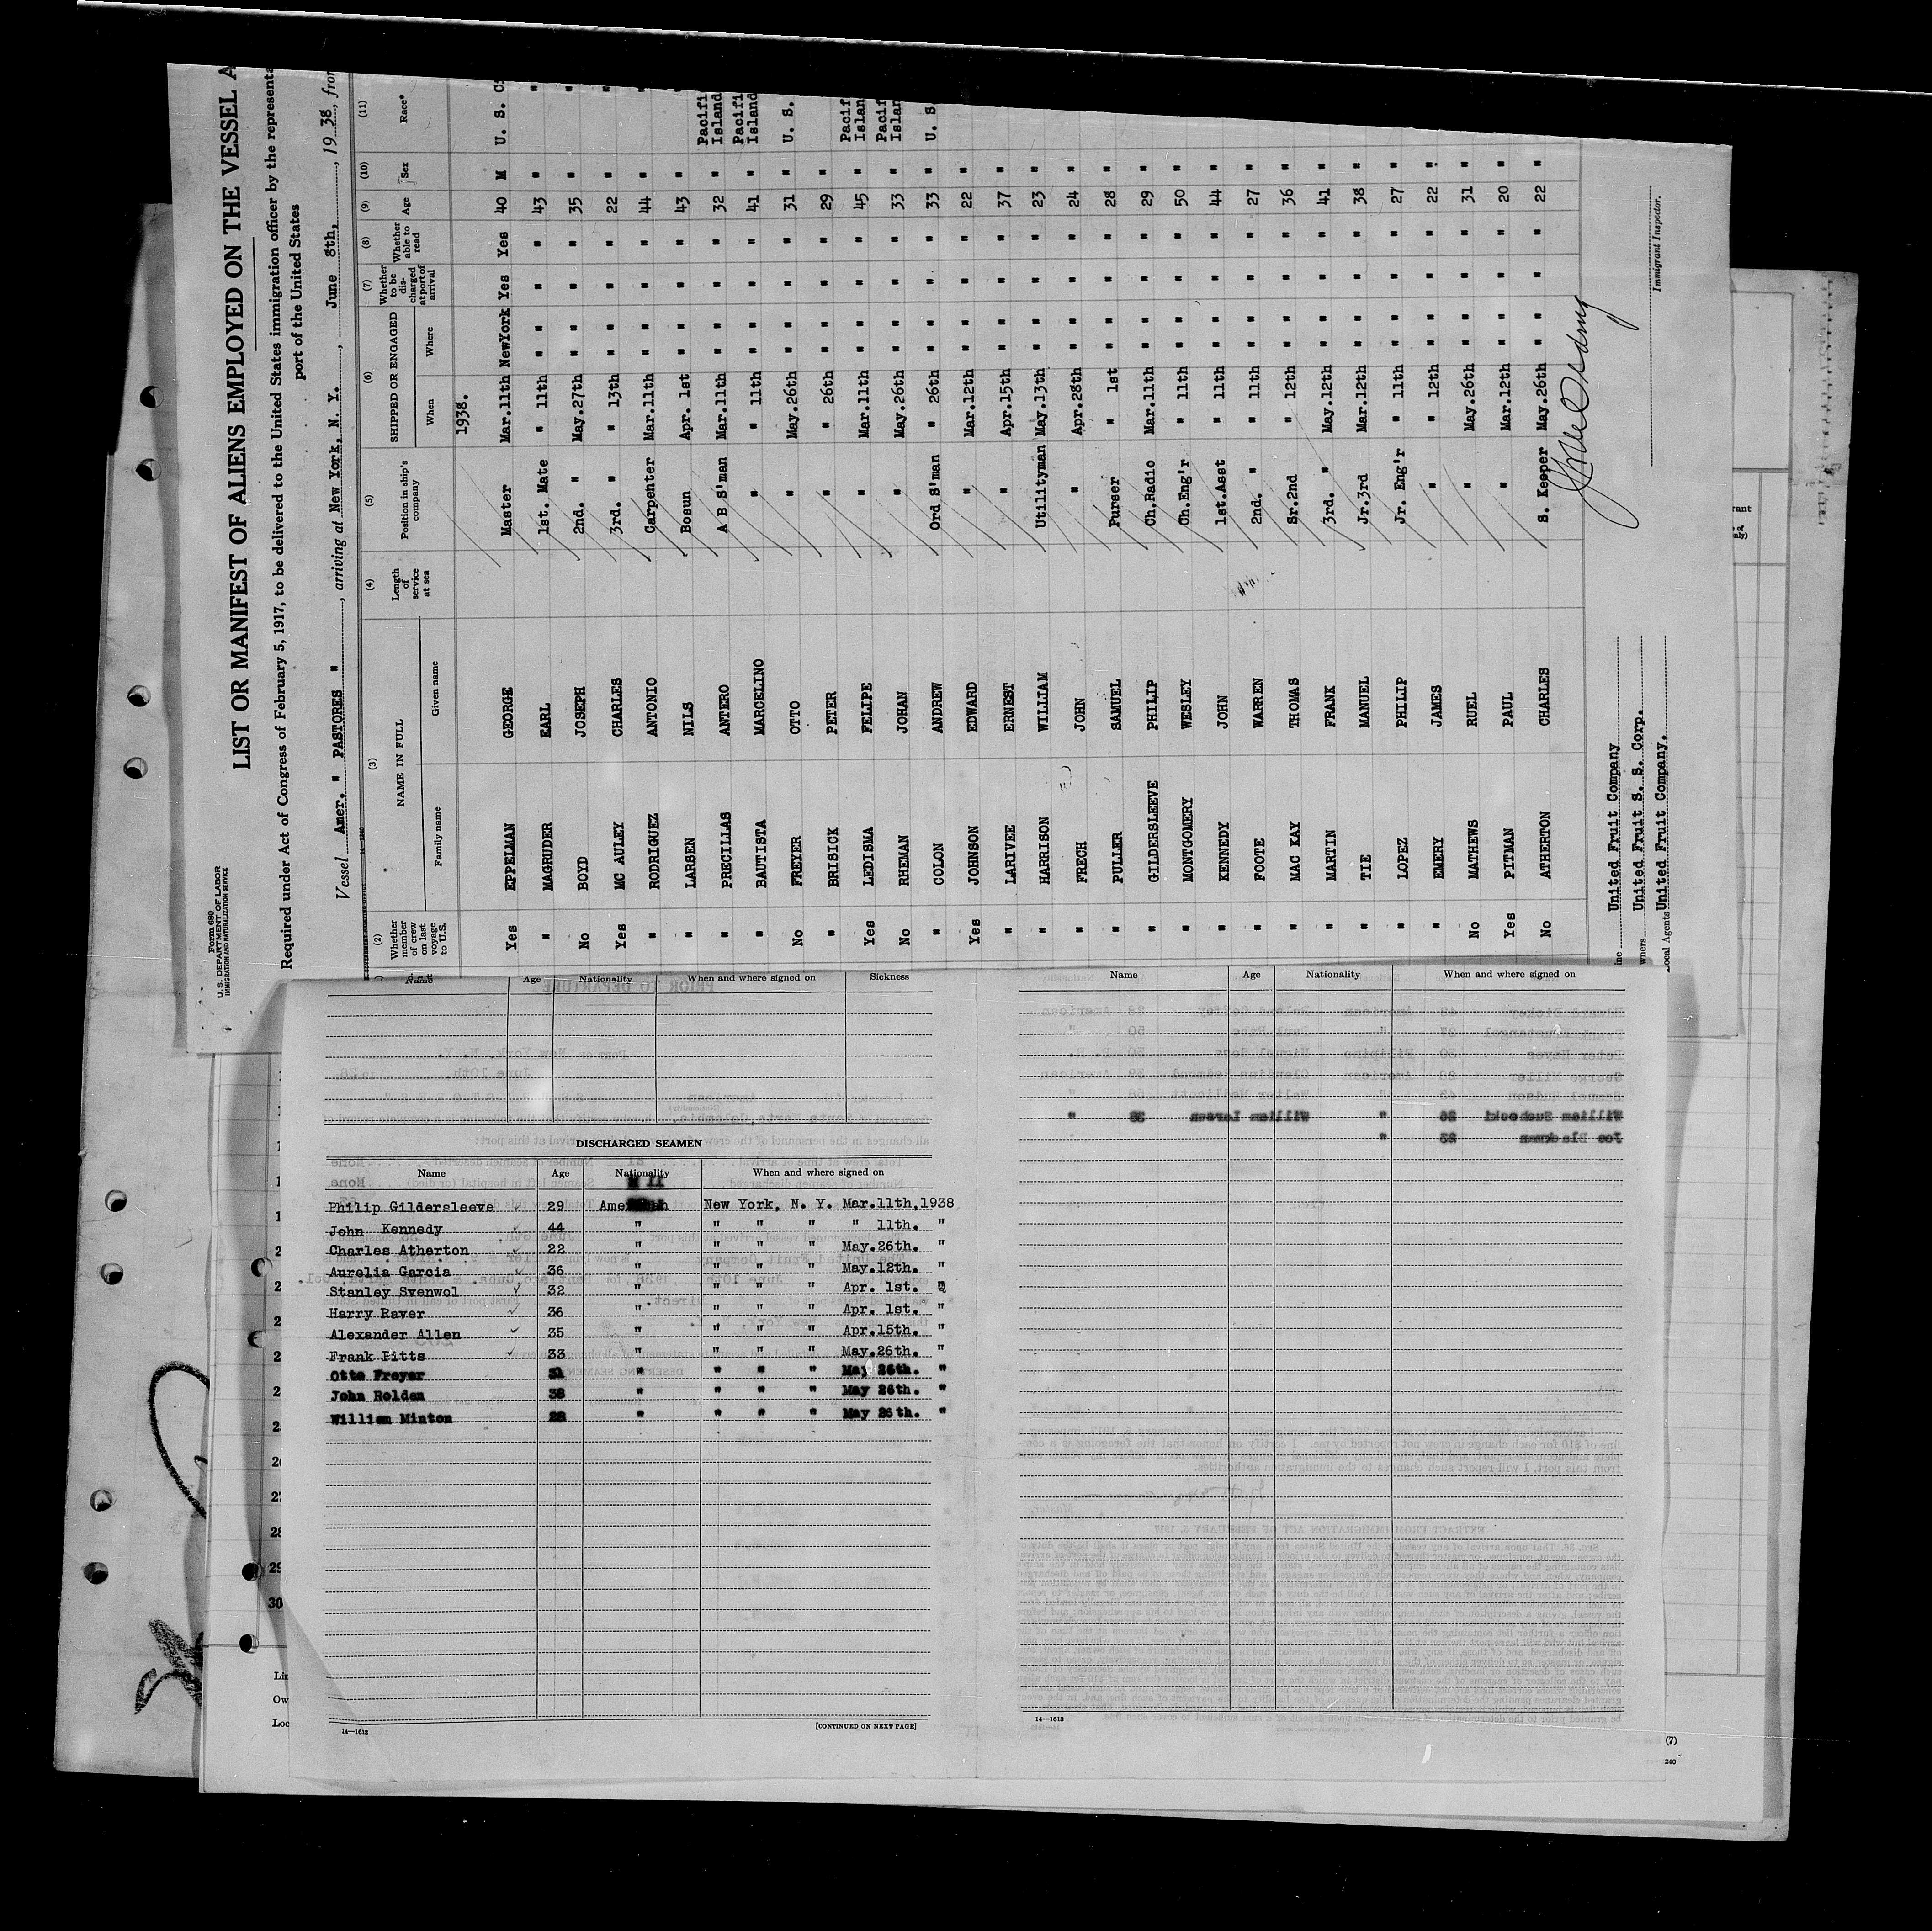 Form 680
U. S. DEPARTMENT OF LABOR
IMMIGRATION AND NATURALIZATION SERVICE
LIST OR MANIFEST OF ALIENS EMPLOYED ON THE VESSEL A
Required under Act of Congress of February 5, 1917, to be delivered to the United States immigration officer by the representa
port of the United States
Vessel Amer. " PASTORES ", arriving at New York, N. Y., June 8th, 1938, from
(2) Whether member of crew on last voyage to U.S. (3) NAME IN FULL Family name Given name (4) Length of service at sea (5) Position in ship's company (6) SHIPPED OR ENGAGED When Where (7) Whether to be discharged at port of arrival (8) Whether able to read (9) Age (10) Sex (11) Race*
1938.
Yes EPPELMAN GEORGE Master Mar.11th NewYork Yes Yes 40 M U. S. C
" MAGRUDER EARL 1st. Mate " 11th " " " " 43 " "
No BOYD JOSEPH 2nd. " May.27th " " " " 35 " "
Yes MC AULEY CHARLES 3rd. " " 13th " " " " 22 " "
" RODRIGUEZ ANTONIO Carpenter Mar.11th " " " " 44 " "
" LARSEN NILS Bosun Apr. 1st " " " " 43 " "
" PRECILLAS ANTERO A B S'man Mar.11th " " " " 32 " Pacifi Island
" BAUTISTA MARCELINO " " 11th " " " " 41 " Pacifi Island
No FREYER OTTO " May.26th " " " " 31 " U. S.
" BRISICK PETER " " 26th " " " " 29 "
Yes LEDISMA FELIPE " Mar.11th " " " " 45 " Pacif Islan
No RHEMAN JOHAN " May.26th " " " " 33 " Pacif Islan
" COLON ANDREW Ord S'man " 26th " " " " 33 " U. S
Yes JOHNSON EDWARD " Mar.12th " " " " 22 "
" LARIVEE ERNEST " Apr.15th " " " " 37 "
" HARRISON WILLIAM Utilityman May.13th " " " " 23 "
" FRECH JOHN " Apr.28th " " " " 24 "
" PULLER SAMUEL Purser " 1st " " " " 28 "
" GILDERSLEEVE PHILIP Ch.Radio Mar.11th " " " " 29 "
" MONTGOMERY WESLEY Ch.Eng'r " 11th " " " " 50 "
" KENNEDY JOHN 1st.Asst " 11th " " " " 44 "
" FOOTE WARREN 2nd. " " 11th " " " " 27 "
" MAC KAY THOMAS Sr.2nd " 12th " " " " 36 "
" MARTIN FRANK 3rd. " May.12th " " " " 41 "
" TIE MANUEL Jr.3rd Mar.12th " " " " 38 "
" LOPEZ PHILIP Jr. Eng'r " 11th " " " " 27 "
" EMERY JAMES " " 12th " " " " 22 "
No MATHEWS RUEL " May.26th " " " " 31 "
Yes PITMAN PAUL " Mar.12th " " " " 20 "
No ATHERTON CHARLES S. Keeper May.26th " " " " 22 "
ine United Fruit Company
wners United Fruit S. S. Corp.
Local Agents United Fruit Company.
Immigrant Inspector.
Name Age Nationality When and where signed on Sickness
DISCHARGED SEAMEN
Name Age Nationality When and where signed on
Philip Gildersleeve 29 American New York, N. Y. Mar.11th,1938
John Kennedy 44 " " " " " 11th. "
Charles Atherton 22 " " " " May.26th. "
Aurelia Garcia 36 " " " " May.12th. "
Stanley Svenwol 32 " " " " Apr. 1st.
Harry Raver 36 " " " " Apr. 1st. "
Alexander Allen 35 " " " " Apr.15th. "
Frank Pitts 33 " " " " May.26th. "
Otto Freyer 31 " " " " May 26th. "
John Rolden 38 " " " " May 26th. "
William Minton 28 " " " " May 26th. "
14—1613
[CONTINUED ON NEXT PAGE]
Name Age Nationality When and where signed on
14—1613
28
29
30
Lin
Ow
Loc
(7)
240